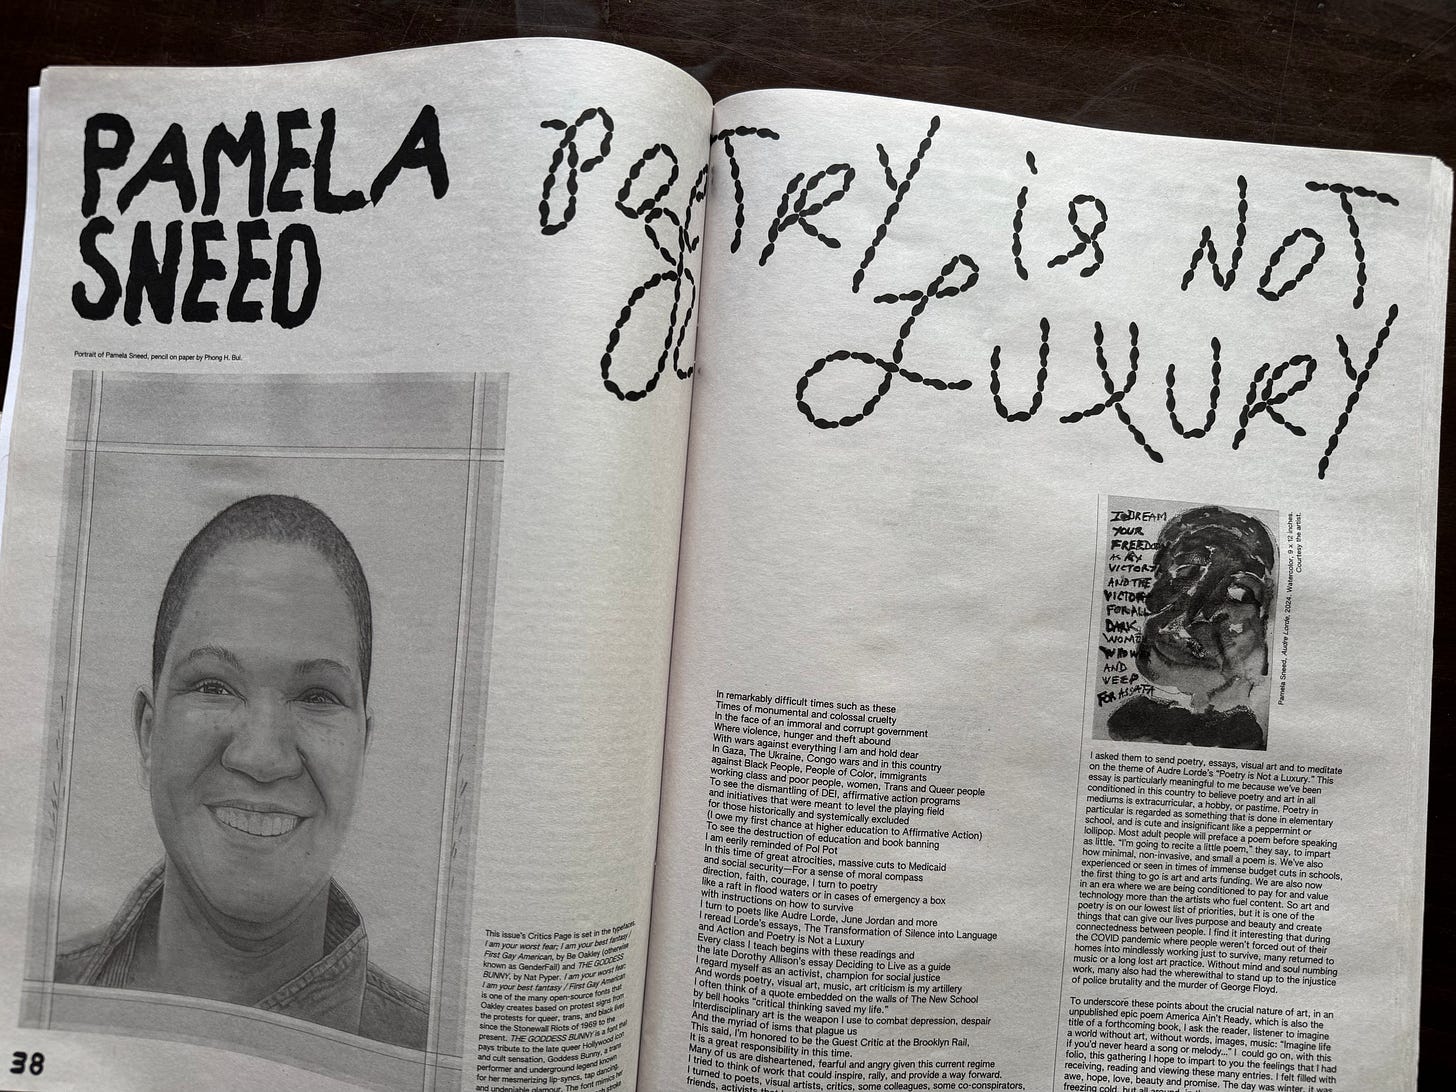 PAMELA
SNEED
Portrait of Pamela Sneed, pencil on paper by Phong H. Bui.
This issue's Critics Page is set in the typefaces,
I am your worst fear; I am your best fantasy /
First Gay American, by Be Oakley (otherwise
known as GenderFail) and THE GODDESS
BUNNY, by Nat Pyper. I am your worst fear;
I am your best fantasy / First Gay American
is one of the many open-source fonts that
Oakley creates based on protest signs from
the protests for queer, trans, and black lives
since the Stonewall Riots of 1969 to the
present. THE GODDESS BUNNY is a font that
pays tribute to the late queer Hollywood icon
and cult sensation, Goddess Bunny, a trans
performer and underground legend known
for her mesmerizing lip-syncs, tap dancing,
and undeniable glamour. The font mimics her
38
POETRY is NOT
a LUXURY
In remarkably difficult times such as these
Times of monumental and colossal cruelty
In the face of an immoral and corrupt government
Where violence, hunger and theft abound
With wars against everything I am and hold dear
In Gaza, The Ukraine, Congo wars and in this country
against Black People, People of Color, immigrants
working class and poor people, women, Trans and Queer people
To see the dismantling of DEI, affirmative action programs
and initiatives that were meant to level the playing field
for those historically and systemically excluded
(I owe my first chance at higher education to Affirmative Action)
To see the destruction of education and book banning
I am eerily reminded of Pol Pot
In this time of great atrocities, massive cuts to Medicaid
and social security—For a sense of moral compass
direction, faith, courage, I turn to poetry
like a raft in flood waters or in cases of emergency a box
with instructions on how to survive
I turn to poets like Audre Lorde, June Jordan and more
I reread Lorde's essays, The Transformation of Silence into Language
and Action and Poetry is Not a Luxury
Every class I teach begins with these readings and
the late Dorothy Allison's essay Deciding to Live as a guide
I regard myself as an activist, champion for social justice
And words poetry, visual art, music, art criticism is my artillery
I often think of a quote embedded on the walls of The New School
by bell hooks "critical thinking saved my life."
Interdisciplinary art is the weapon I use to combat depression, despair
And the myriad of isms that plague us
This said, I'm honored to be the Guest Critic at the Brooklyn Rail,
It is a great responsibility in this time.
Many of us are disheartened, fearful and angry given this current regime
I tried to think of work that could inspire, rally, and provide a way forward.
I turned to poets, visual artists, critics, some colleagues, some co-conspirators,
friends, activists
DREAM
YOUR
FREEDOM
AS MY
VICTORY
AND THE
VICTORY
FOR ALL
DARK
WOMEN
AND
WEEP
FOR ASSATA
Pamela Sneed, Audre Lorde, 2024. Watercolor, 9 x 12 inches.
Courtesy the artist.
I asked them to send poetry, essays, visual art and to meditate
on the theme of Audre Lorde's "Poetry is Not a Luxury." This
essay is particularly meaningful to me because we've been
conditioned in this country to believe poetry and art in all
mediums is extracurricular, a hobby, or pastime. Poetry in
particular is regarded as something that is done in elementary
school, and is cute and insignificant like a peppermint or
lollipop. Most adult people will preface a poem before speaking
as little. "I'm going to recite a little poem," they say, to impart
how minimal, non-invasive, and small a poem is. We've also
experienced or seen in times of immense budget cuts in schools,
the first thing to go is art and arts funding. We are also now
in an era where we are being conditioned to pay for and value
technology more than the artists who fuel content. So art and
poetry is on our lowest list of priorities, but it is one of the
things that can give our lives purpose and beauty and create
connectedness between people. I find it interesting that during
the COVID pandemic where people weren't forced out of their
homes into mindlessly working just to survive, many returned to
music or a long lost art practice. Without mind and soul numbing
work, many also had the wherewithal to stand up to the injustice
of police brutality and the murder of George Floyd.
To underscore these points about the crucial nature of art, in an
unpublished epic poem America Ain't Ready, which is also the
title of a forthcoming book, I ask the reader, listener to imagine
a world without art, without words, images, music: "Imagine life
if you'd never heard a song or melody..." I could go on, with this
folio, this gathering I hope to impart to you the feelings that I had
receiving, reading and viewing these many entries. I felt filled with
awe, hope, love, beauty and promise. The day was winter, it was
freezing cold, but all around